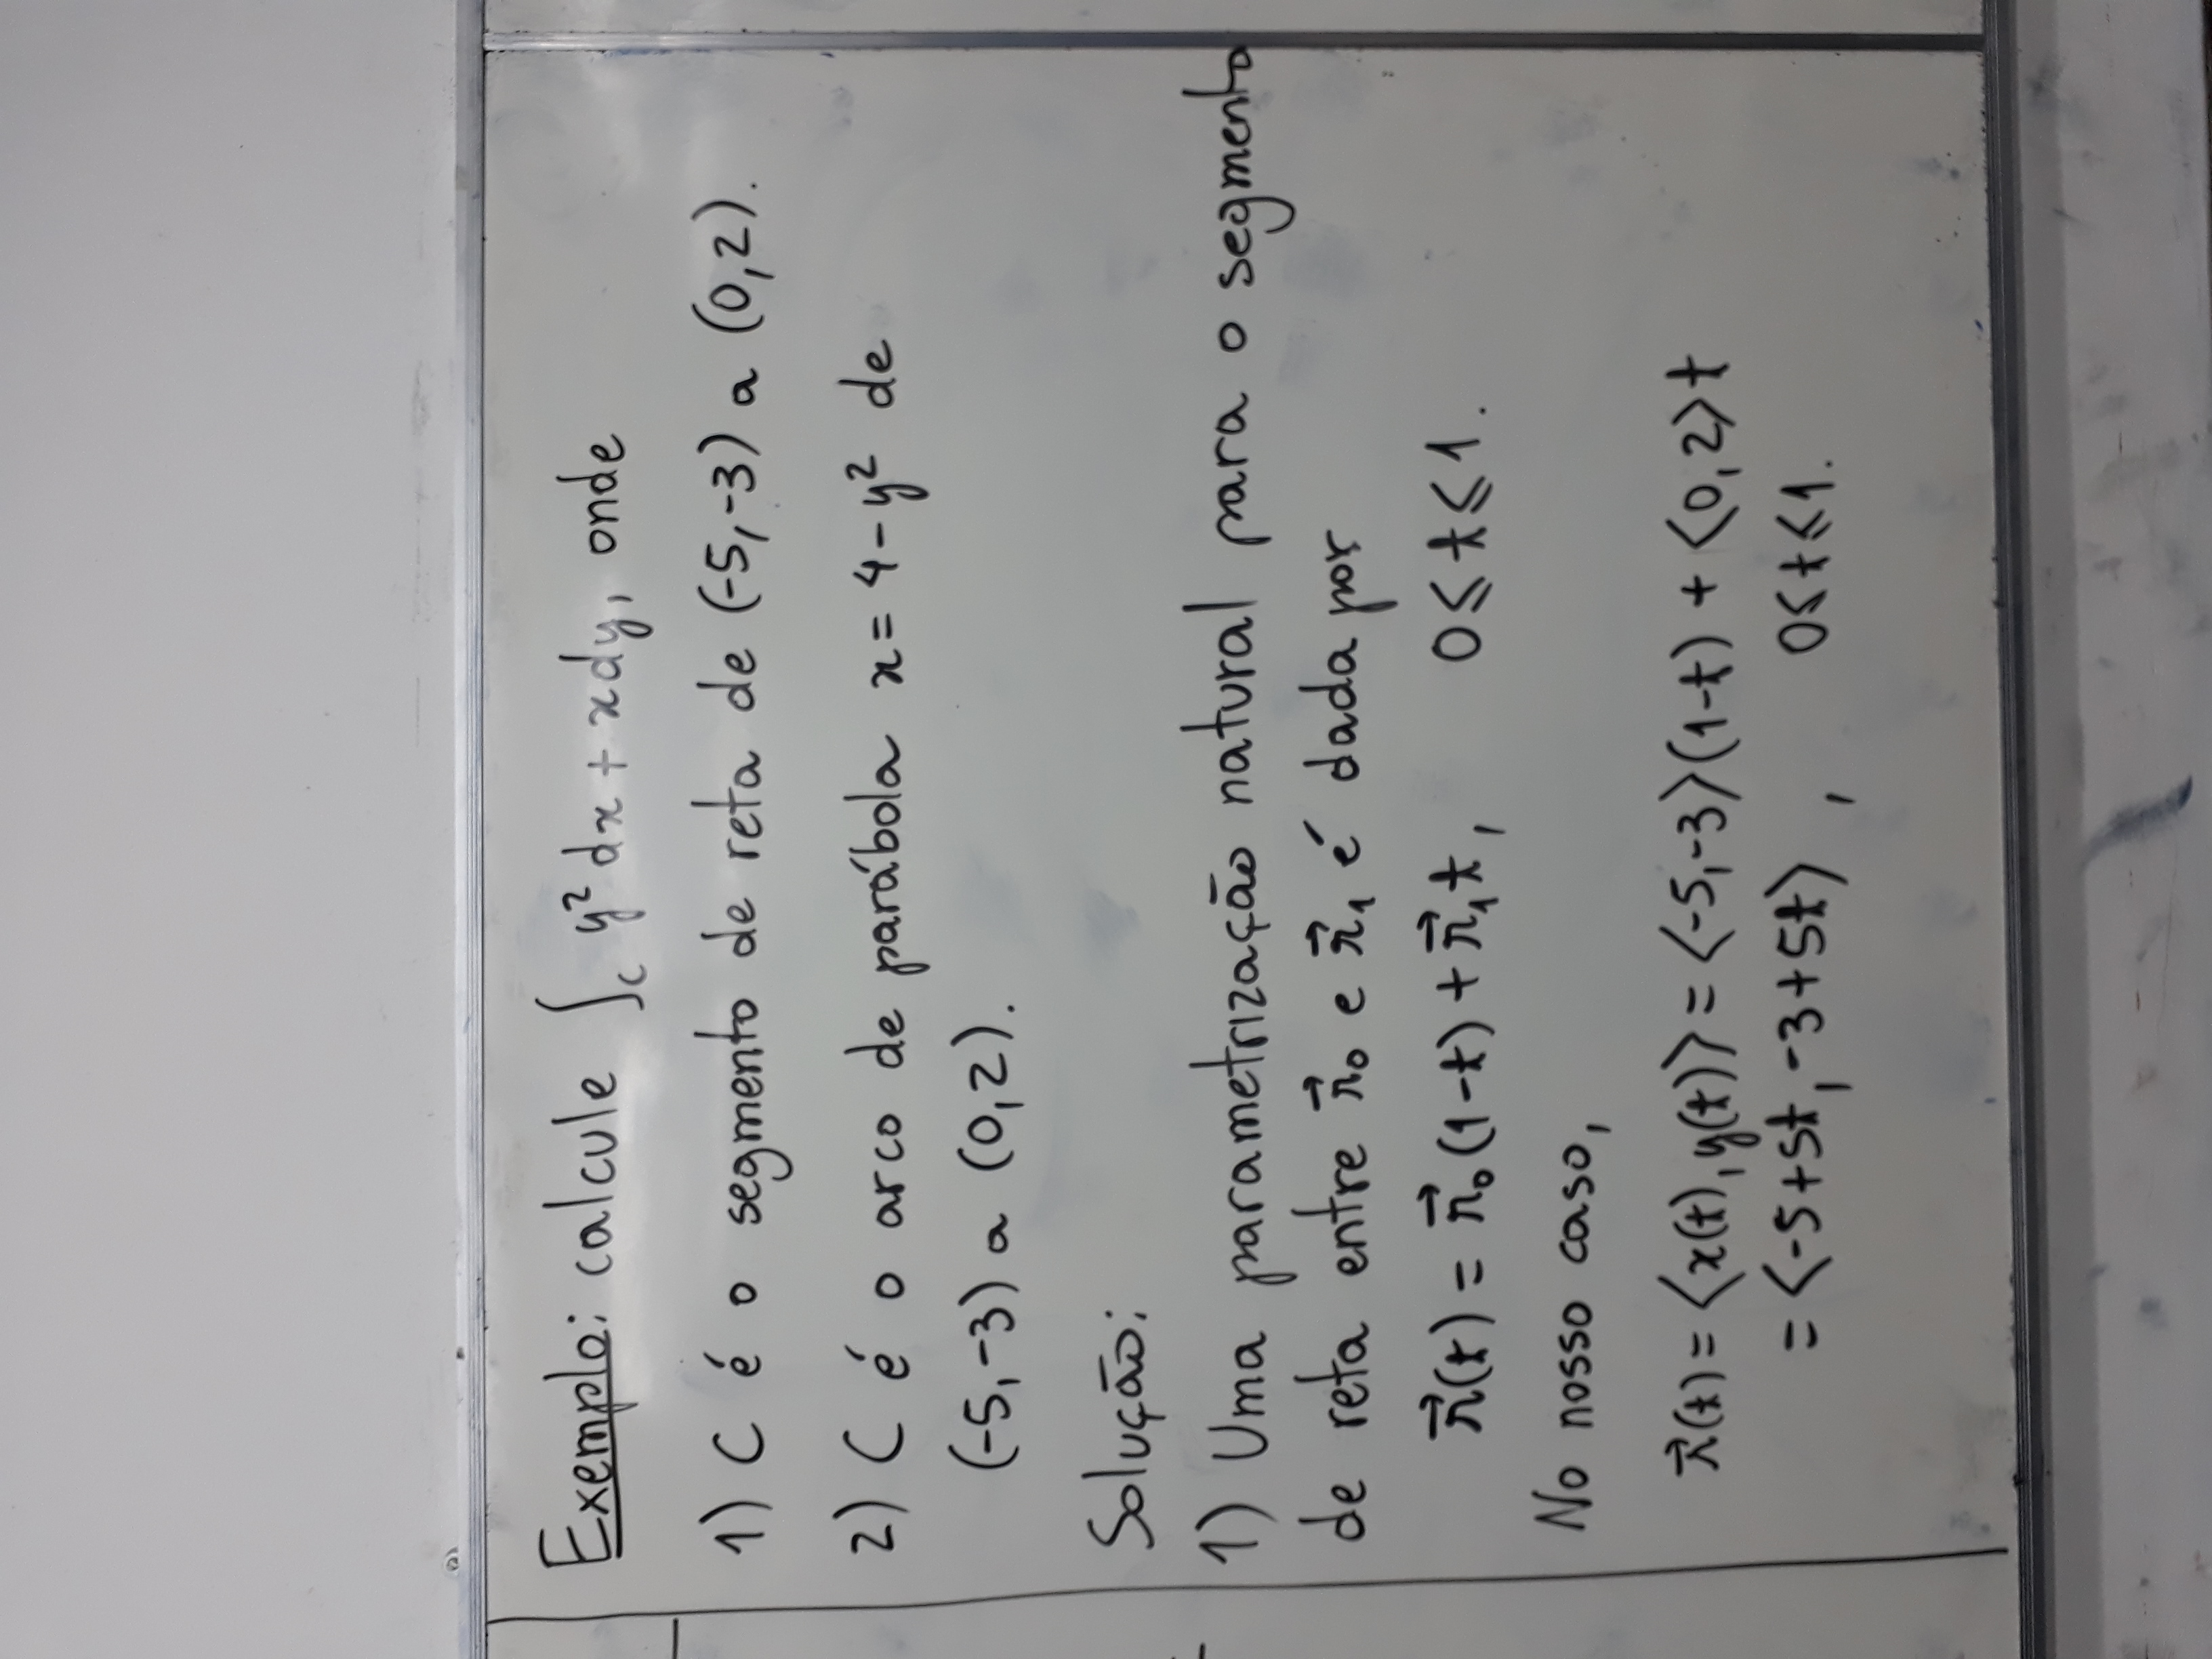 Exemplo: calcule ∫_C y² dx + x dy, onde
1) C é o segmento de reta de (-5,-3) a (0,2).
2) C é o arco de parábola x = 4 - y² de
(-5,-3) a (0,2).
Solução:
1) Uma parametrização natural para o segmento
de reta entre r⃗₀ e r⃗₁ é dada por
r⃗(t) = r⃗₀(1-t) + r⃗₁t, 0 ≤ t ≤ 1.
No nosso caso,
r⃗(t) = ⟨x(t), y(t)⟩ = ⟨-5,-3⟩(1-t) + ⟨0,2⟩t
= ⟨-5+5t, -3+5t⟩, 0 ≤ t ≤ 1.